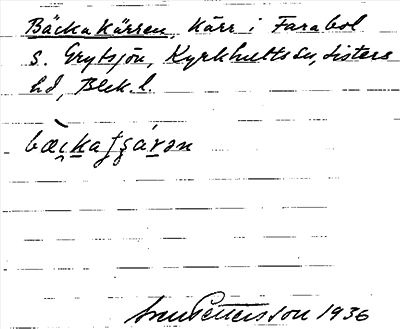 Bäckakärren, Kärr i Farabol
s. Grytsjön, Kyrkhults sn, Listers
hd, Blek. l.
Sven Pettersson 1936